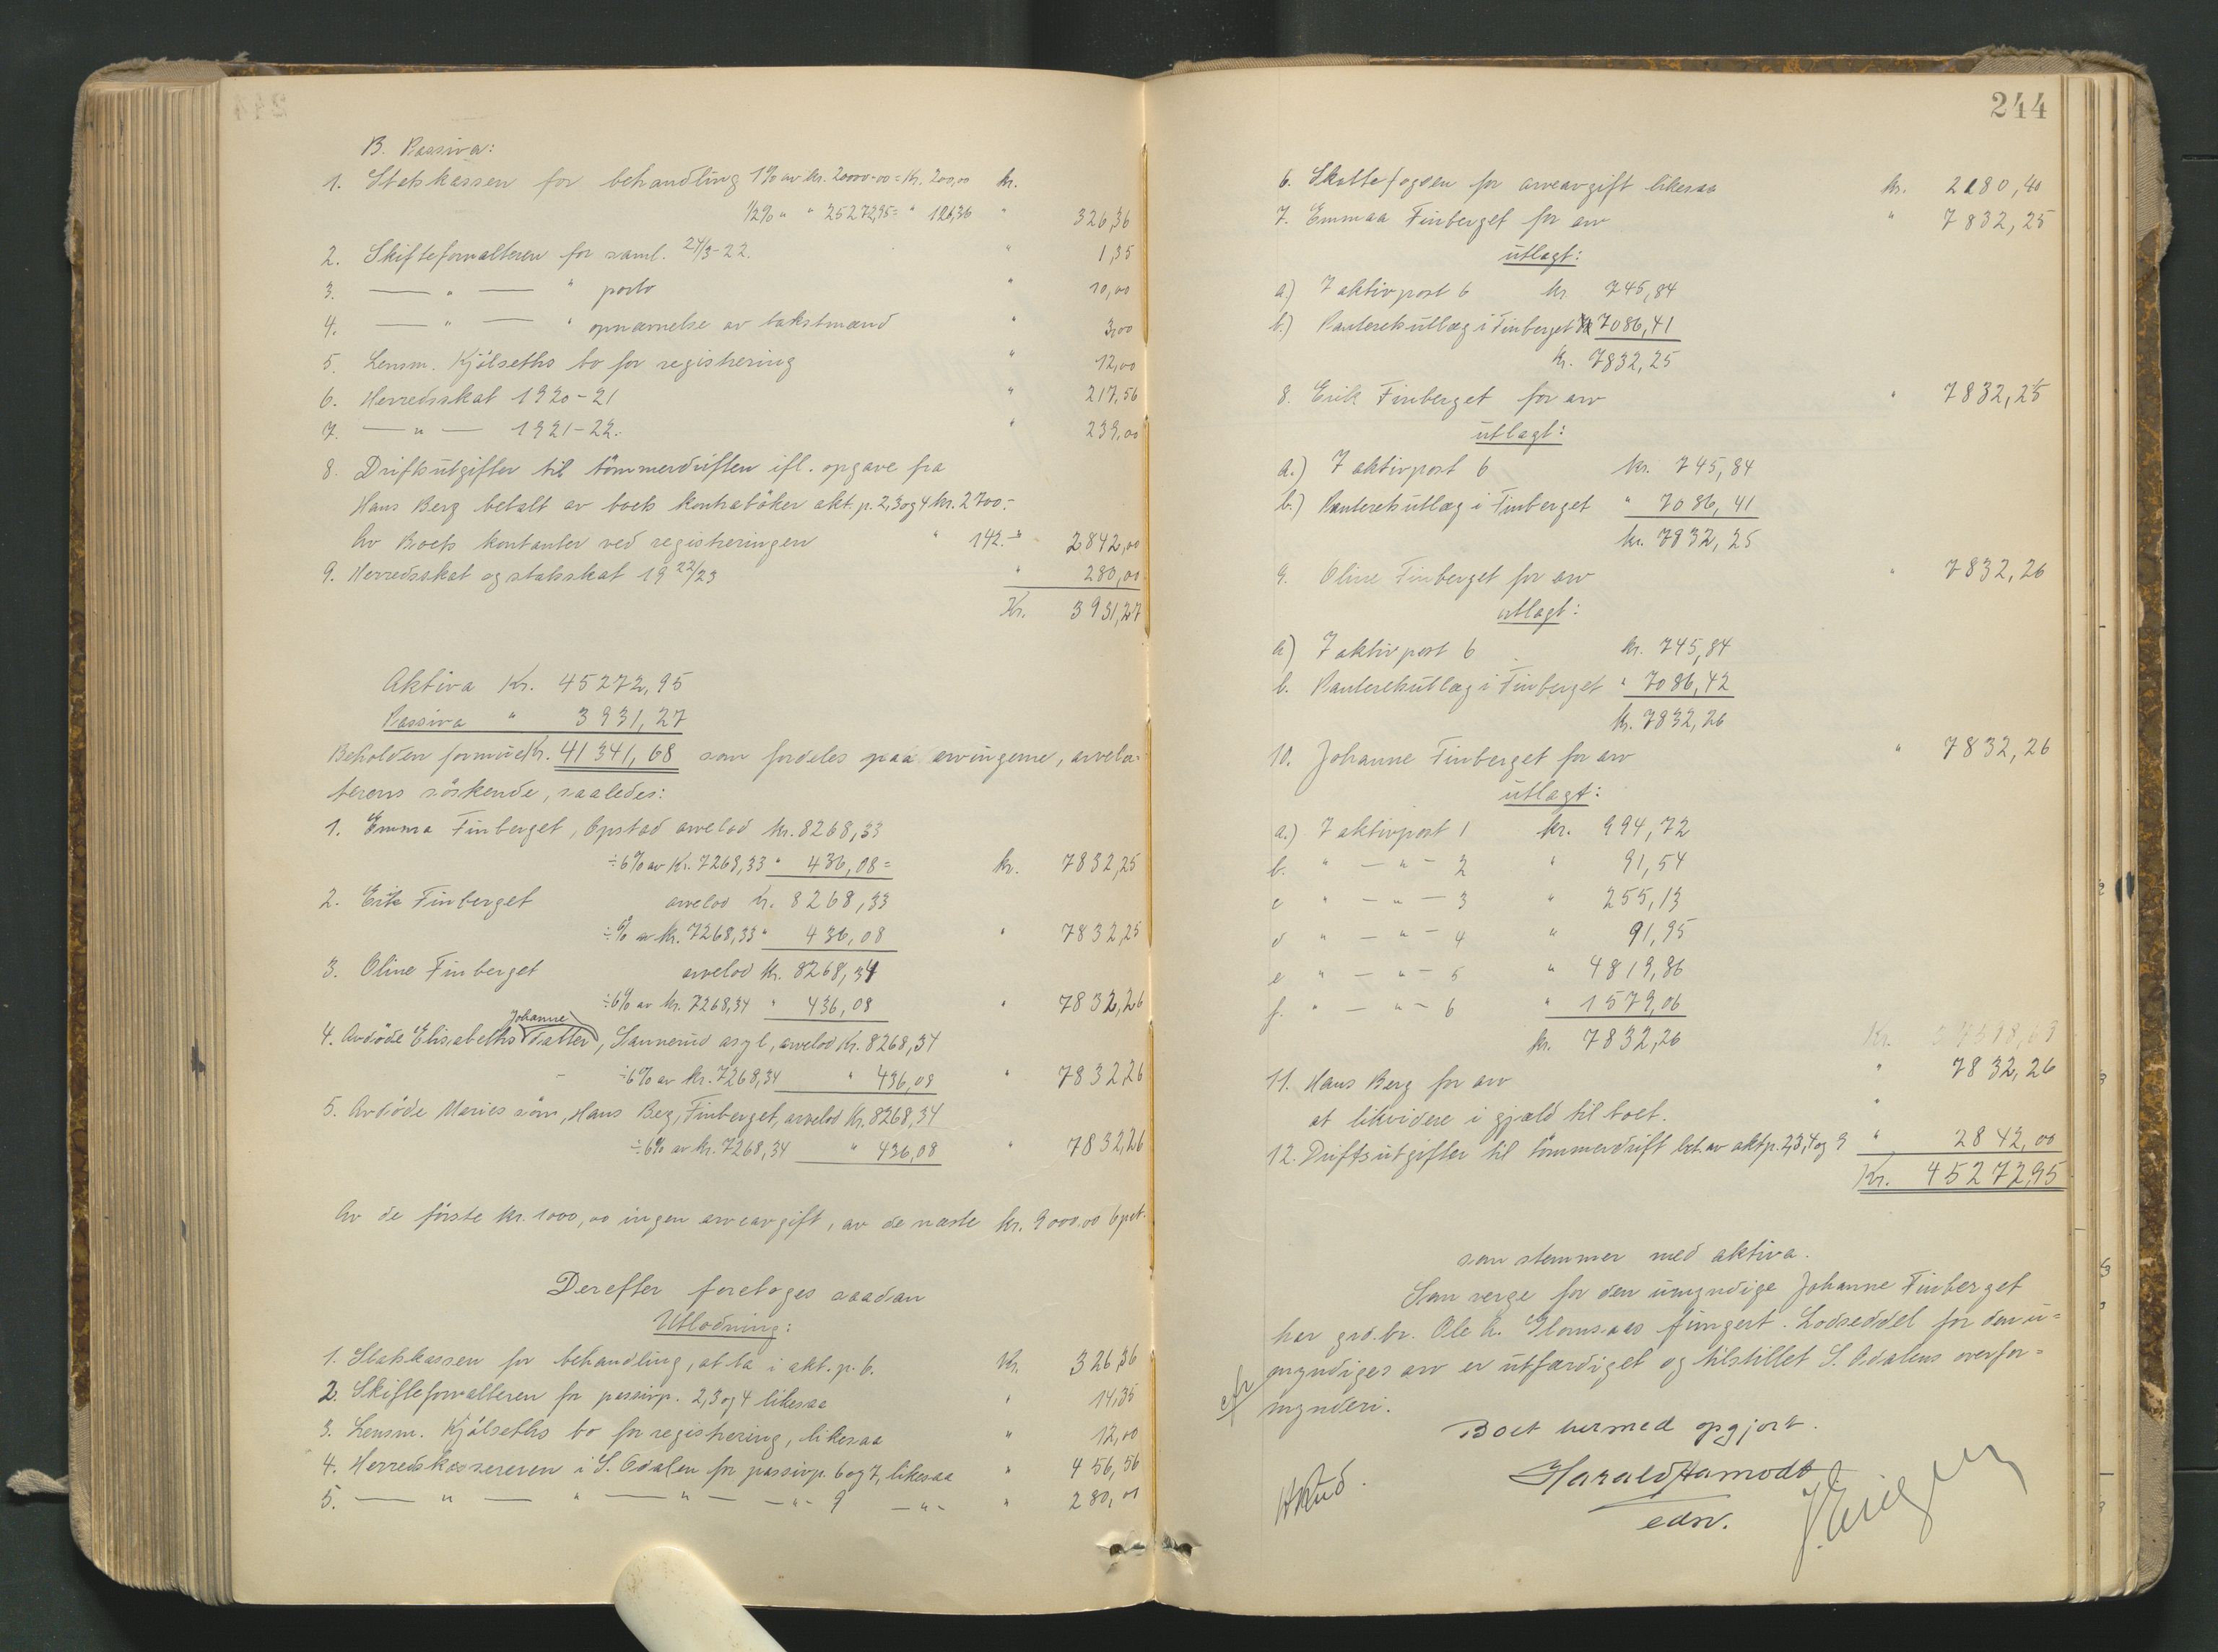 B. Passiva:
1. Statskassen for behandling 1% av kr. 20000-00 = Kr. 200,00 kr.
1/2% " " 25272,95 = " 126,36 " 326,36
2. Skifteforvalteren for saml. 24/3-22. " 1,35
3. — " — " porto " 10,00
4. — " — " opnævnelse av takstmænd " 3,00
5. Lensm. Kjölseths bo for registrering " 12,00
6. Herredsskat 1920-21 " 217,56
7. — " — 1921-22. " 239,00
8. Driftsutgifter til tömmerdriften ifl. opgave fra
Hans Berg betalt av boets kontraböker akt. p. 2,3 og 4 kr. 2700.-
Av Boets kontanter ved registreringen " 142.- " 2842,00
9. Herredsskat og statsskat 19 22/23 " 280,00
Kr. 3931,27
Aktiva Kr. 45272,95
Passiva " 3931,27
Beholden formue Kr. 41341,68 som fordeles paa arvingerne, arvela-
terens söskende, saaledes:
1. Emma Finberget, Opstad arvelod kr. 8268,33
÷ 6% av Kr. 7268,33 " 436,08 = kr. 7832,25
2. Erik Finberget arvelod Kr. 8268,33
÷ % av kr. 7268,33 " 436,08 " 7832,25
3. Oline Finberget arvelod Kr. 8268,34
÷ 6% av kr. 7268,34 " 436,08 " 7832,26
Johanne
4. Avdöde Elisabeths datter, Sannerud asyl, arvelod Kr. 8268,34
÷ 6% av kr. 7268,34 " 436,08 " 7832,26
5. Avdöde Maries sön, Hans Berg, Finberget, arvelod Kr. 8268,34
÷ 6% av kr. 7268,34 " 436,08 " 7832,26
Av de förste kr. 1000,00 ingen arveavgift, av de næste kr. 9000.00 6 pct.
Derefter foretages saadan
Utlodning:
1. Statskassen for behandling, at ta i akt. p. 6. Kr. 326,36
2. Skifteforvalteren for passivp. 2,3 og 4 likesaa " 14,35
3. Lensm. Kjölseths bo for registrering, likesaa " 12,00
4. Herredskassereren i S. Odalen for passivp. 6 og 7, likesaa " 456,56
5. — " — " — " — — " - 9 — " - " 280,00
244
6. Skattefogden for arveavgift likesaa kr. 2180,40
7. Emmaa Finberget for arv " 7832,25
utlagt:
a.) I aktivpost 6 kr. 745,84
b.) Panteretsutlæg i Finberget Kr. 7086,41
Kr. 7832,25
8. Erik Finberget for arv " 7832,25
utlagt:
a.) I aktivpost 6 kr. 745,84
b.) Panteretsutlæg i Finberget " 7086,41
kr. 7832,25
9. Oline Finberget for arv " 7832,26
utlagt:
a) I aktivpost 6 kr. 745,84
b. Panteretsutlæg i Finberget " 7086,42
kr. 7832,26
10. Johanne Finberget for arv " 7832,26
utlagt:
a.) I aktivpost 1 kr. 994,72
b. " — " — 2 " 91,54
c " — " — 3 " 255,13
d " — " — 4 " 91,95
e " — " — 5 " 4819,86
f. " — " — 6 " 1579,06
kr. 7832,26
11. Hans Berg for arv " 7832,26
at likvidere i gjæld til boet. "
12. Driftsutgifter til tömmerdrift bet. av aktp. 2,3,4 og 9 " 2842,00
Kr. 45272,95
som stemmer med aktiva.
Som verge for den umyndige Johanne Finberget
har grd.br. Ole A. Glomsaas fungert. Lodseddel for den u-
myndiges arv er utfærdiget og tilstillet S. Odalens overfor-
mynderi.
Boet hermed opgjort.
Harald Hamodt
edsv.